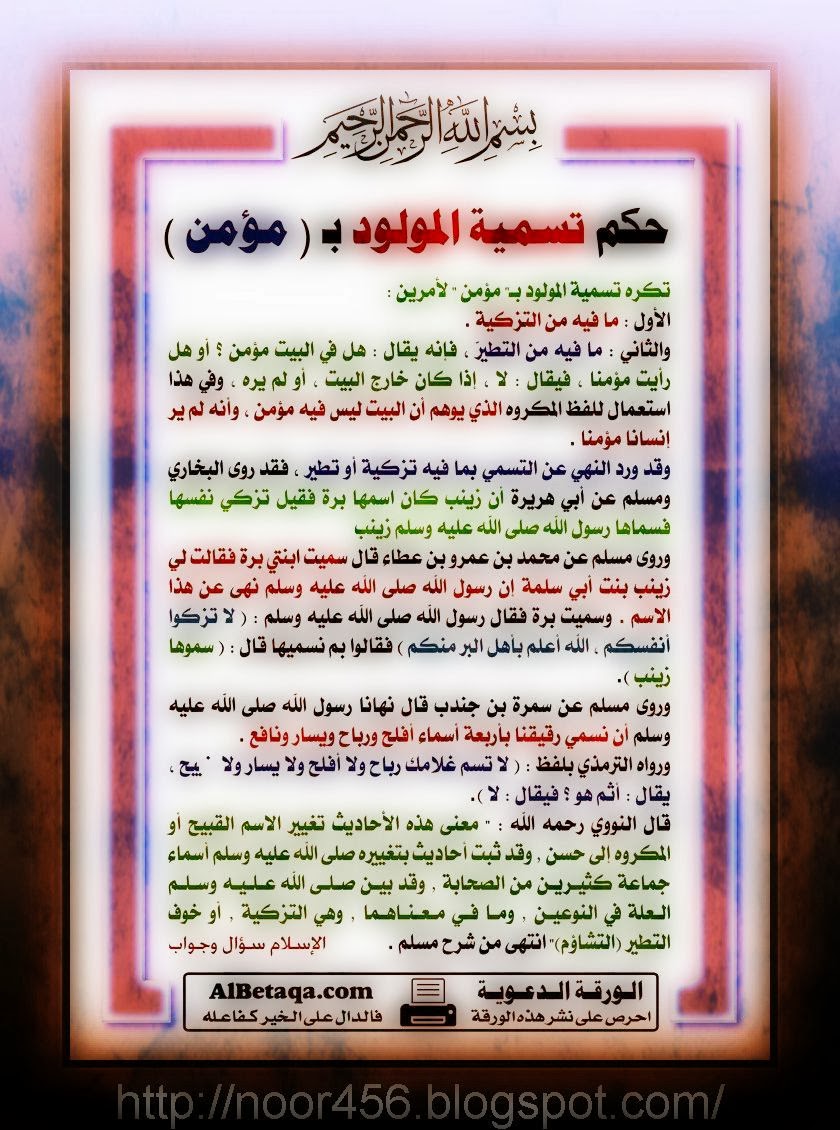 بسم الله الرحمن الرحيم
حكم تسمية المولود بـ ( مؤمن )
تكره تسمية المولود بـ" مؤمن " لأمرين :
الأول : ما فيه من التزكية .
والثاني : ما فيه من التطيرَ ، فإنه يقال : هل في البيت مؤمن ؟ أو هل
رأيت مؤمنا ، فيقال : لا ، إذا كان خارج البيت ، أو لم يره ، وفي هذا
استعمال للفظ المكروه الذي يوهم أن البيت ليس فيه مؤمن ، وأنه لم ير
إنسانا مؤمنا .
وقد ورد النهي عن التسمي بما فيه تزكية أو تطير ، فقد روى البخاري
ومسلم عن أبي هريرة أن زينب كان اسمها برة فقيل تزكي نفسها
فسماها رسول الله صلى الله عليه وسلم زينب
وروى مسلم عن محمد بن عمرو بن عطاء قال سميت ابنتي برة فقالت لي
زينب بنت أبي سلمة إن رسول الله صلى الله عليه وسلم نهى عن هذا
الاسم . وسميت برة فقال رسول الله صلى الله عليه وسلم : ( لا تزكوا
أنفسكم ، الله أعلم بأهل البر منكم ) فقالوا بم نسميها قال : ( سموها
زينب ).
وروى مسلم عن سمرة بن جندب قال نهانا رسول الله صلى الله عليه
وسلم أن نسمي رقيقنا بأربعة أسماء أفلح ورباح ويسار ونافع .
ورواه الترمذي بلفظ : ( لا تسم غلامك رباح ولا أفلح ولا يسار ولا ،
يقال : أثم هو ؟ فيقال : لا ).
قال النووي رحمه الله : " معنى هذه الأحاديث تغيير الاسم القبيح أو
المكروه إلى حسن , وقد ثبت أحاديث بتغييره صلى الله عليه وسلم أسماء
جماعة كثيرين من الصحابة , وقد بين صلى الله عليه وسلم
العلة في النوعين , وما في معناهما , وهي التزكية , أو خوف
التطير (التشاؤم)" انتهى من شرح مسلم . الإسلام سؤال وجواب
الورقة الدعوية AlBetaqa.com
احرص على نشر هذه الورقة فالدال على الخير كفاعله
http://noor456.blogspot.com/